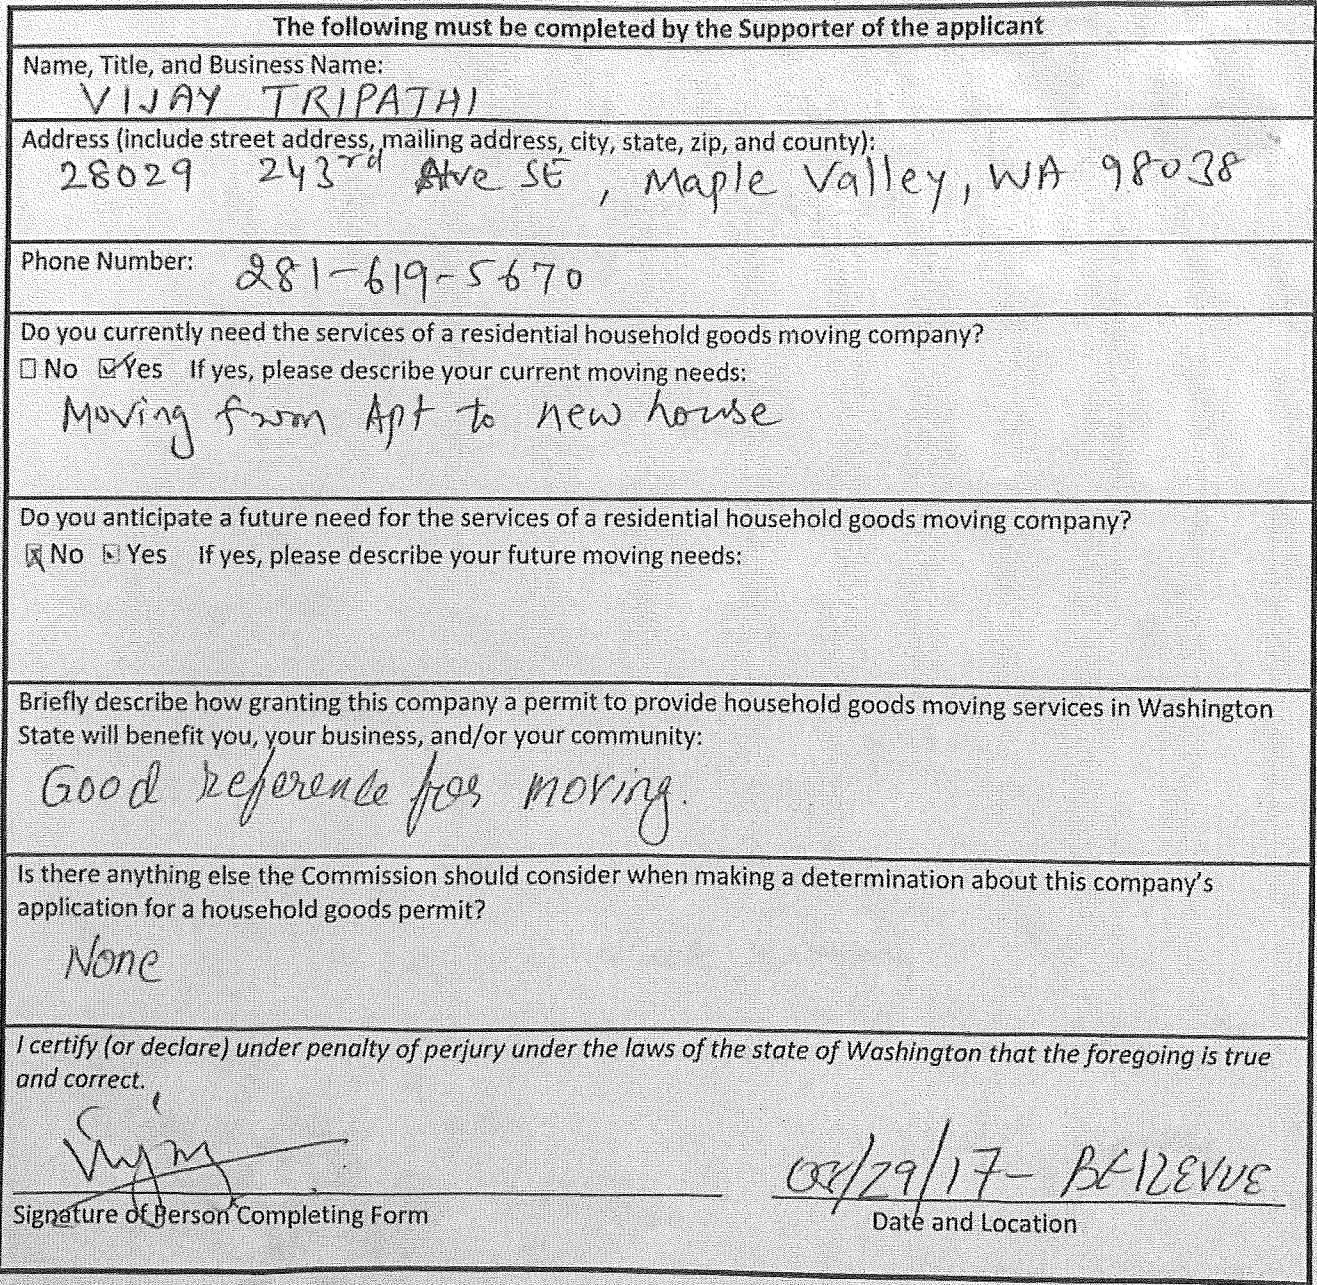 The following must be completed by the Supporter of the applicant
Name, Title, and Business Name:
VIJAY TRIPATHI
Address (include street address, mailing address, city, state, zip, and county):
28029 243rd Ave SE, Maple Valley, WA 98038
Phone Number: 281-619-5670
Do you currently need the services of a residential household goods moving company?
☐ No ☑ Yes If yes, please describe your current moving needs:
Moving from Apt to new house
Do you anticipate a future need for the services of a residential household goods moving company?
☒ No ☐ Yes If yes, please describe your future moving needs:
Briefly describe how granting this company a permit to provide household goods moving services in Washington
State will benefit you, your business, and/or your community:
Good reference for moving.
Is there anything else the Commission should consider when making a determination about this company's
application for a household goods permit?
None
I certify (or declare) under penalty of perjury under the laws of the state of Washington that the foregoing is true
and correct.
/29/17- BELLEVUE
Signature of Person Completing Form
Date and Location